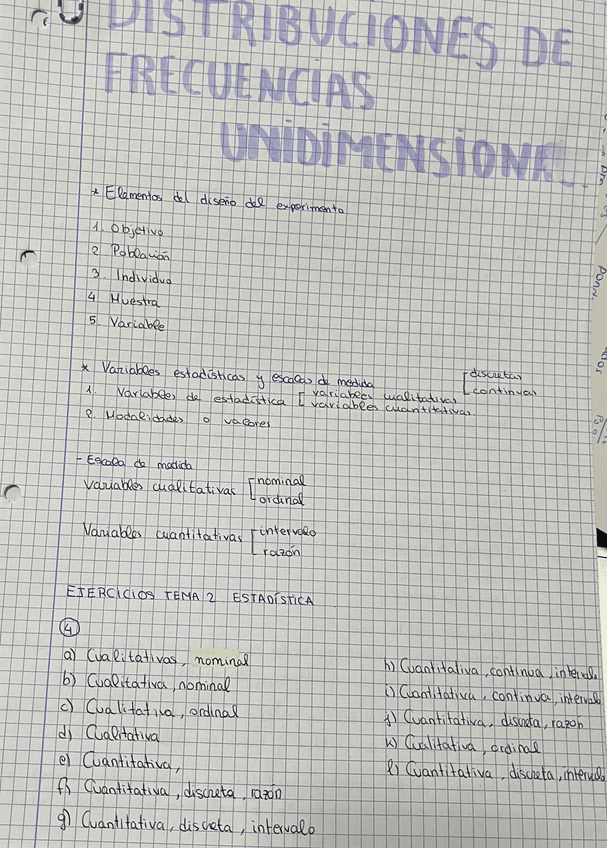 DISTRIBUCIONES DE
FRECUENCIAS
UNIDIMENSIONAL
* Elementos del diseño del experimento
1. Objetivo
2. Población
3. Individuo
4. Muestra
5. Variable
* Variables estadísticas y escalas de medida
1. Variables de estadística [ variables cualitativas
variables cuantitativas
[ discretas
continuas
2. Modalidades o valores
- Escala de medida
Variables cualitativas [ nominal
ordinal
Variables cuantitativas [ intervalo
razón
EJERCICIOS TEMA 2 ESTADÍSTICA
4
a) Cualitativas, nominal
b) Cualitativa, nominal
c) Cualitativa, ordinal
d) Cualitativa
e) Cuantitativa,
f) Cuantitativa, discreta, razón
g) Cuantitativa, discreta, intervalo
h) Cuantitativa, continua, intervalo
i) Cuantitativa, continua, intervalo
j) Cuantitativa, discreta, razón
k) Cualitativa, ordinal
l) Cuantitativa, discreta, intervalo